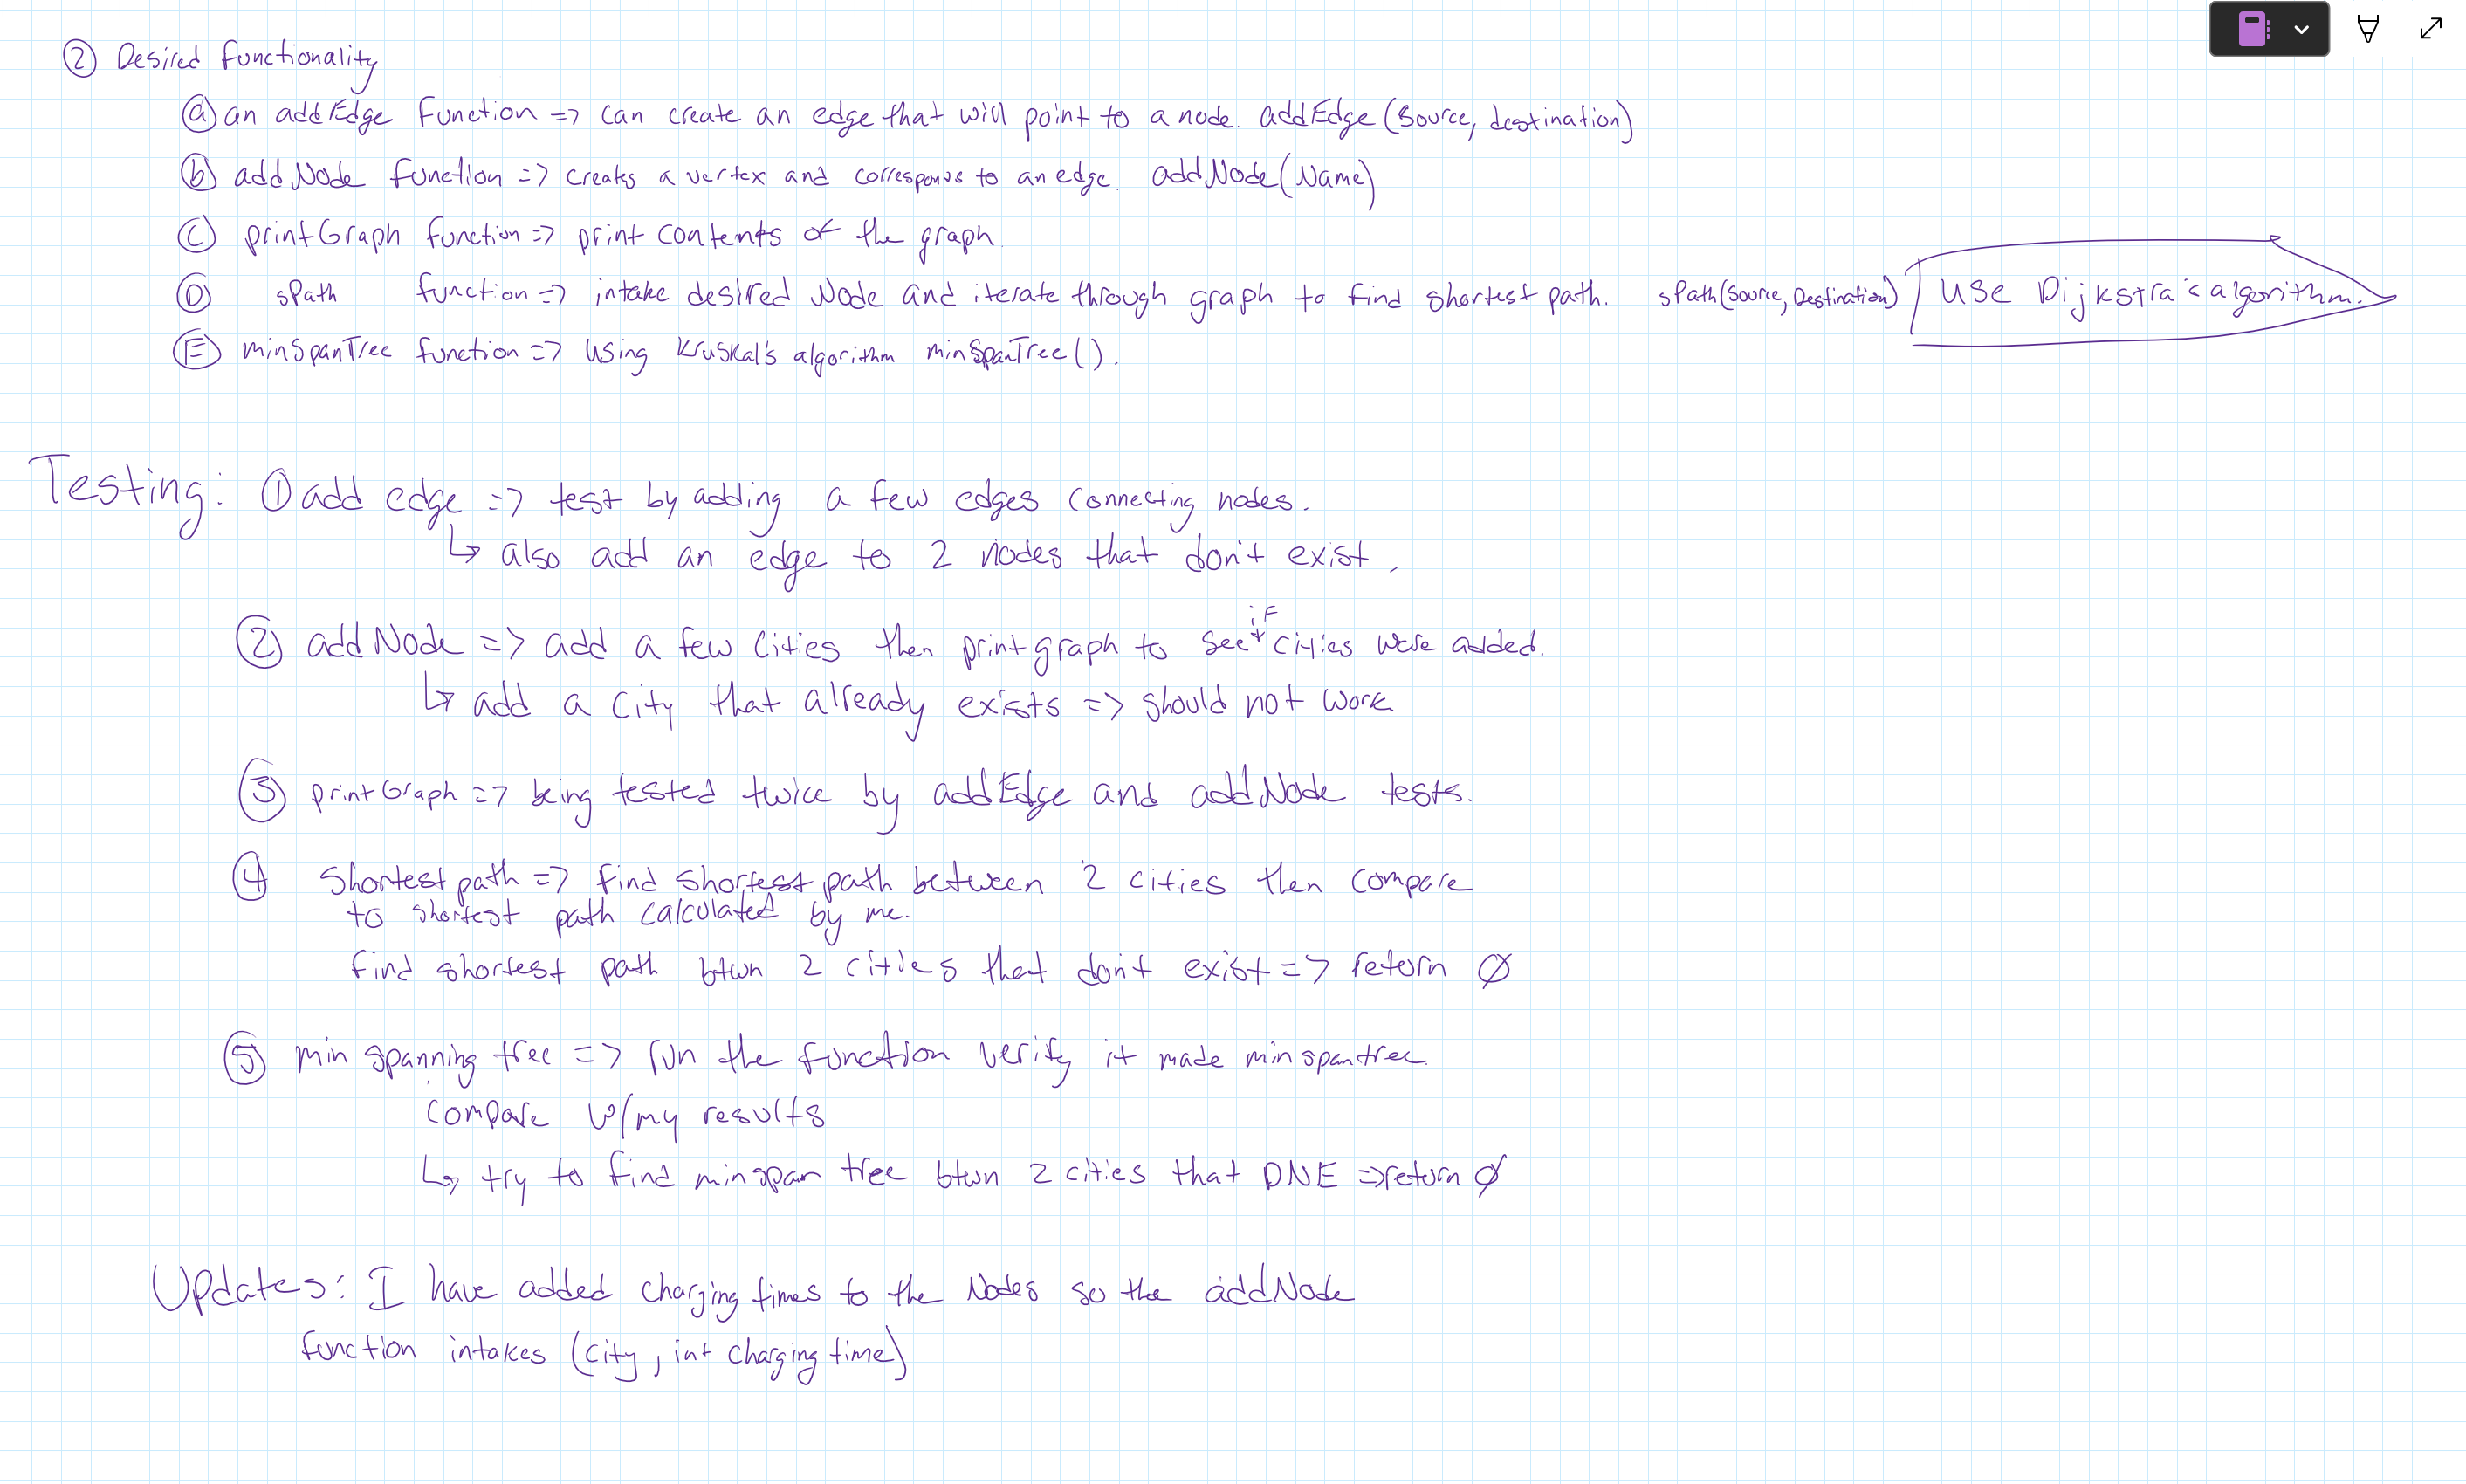 ② Desired functionality
ⓐ an addEdge function => can create an edge that will point to a node. addEdge(source, destination)
ⓑ addNode function => creates a vertex and corresponds to an edge. addNode(Name)
Ⓒ printGraph function => print contents of the graph.
Ⓓ sPath function => intake desired Node and iterate through graph to find shortest path. sPath(source, Destination) Use Dijkstra's algorithm.
Ⓔ minSpanTree function => Using Kruskal's algorithm minSpanTree().
Testing: ① add edge => test by adding a few edges connecting nodes.
↳ also add an edge to 2 nodes that don't exist.
② addNode => add a few cities then print graph to see if cities were added.
↳ add a city that already exists => should not work
③ printGraph => being tested twice by addEdge and addNode tests.
④ Shortest path => find shortest path between 2 cities then compare
to shortest path calculated by me.
find shortest path btwn 2 cities that don't exist => return Ø
⑤ min spanning tree => run the function verify it made minspantree.
compare w/my results
↳ try to find minspan tree btwn 2 cities that DNE => return Ø
Updates: I have added charging times to the Nodes so the addNode
function intakes (city, int charging time)